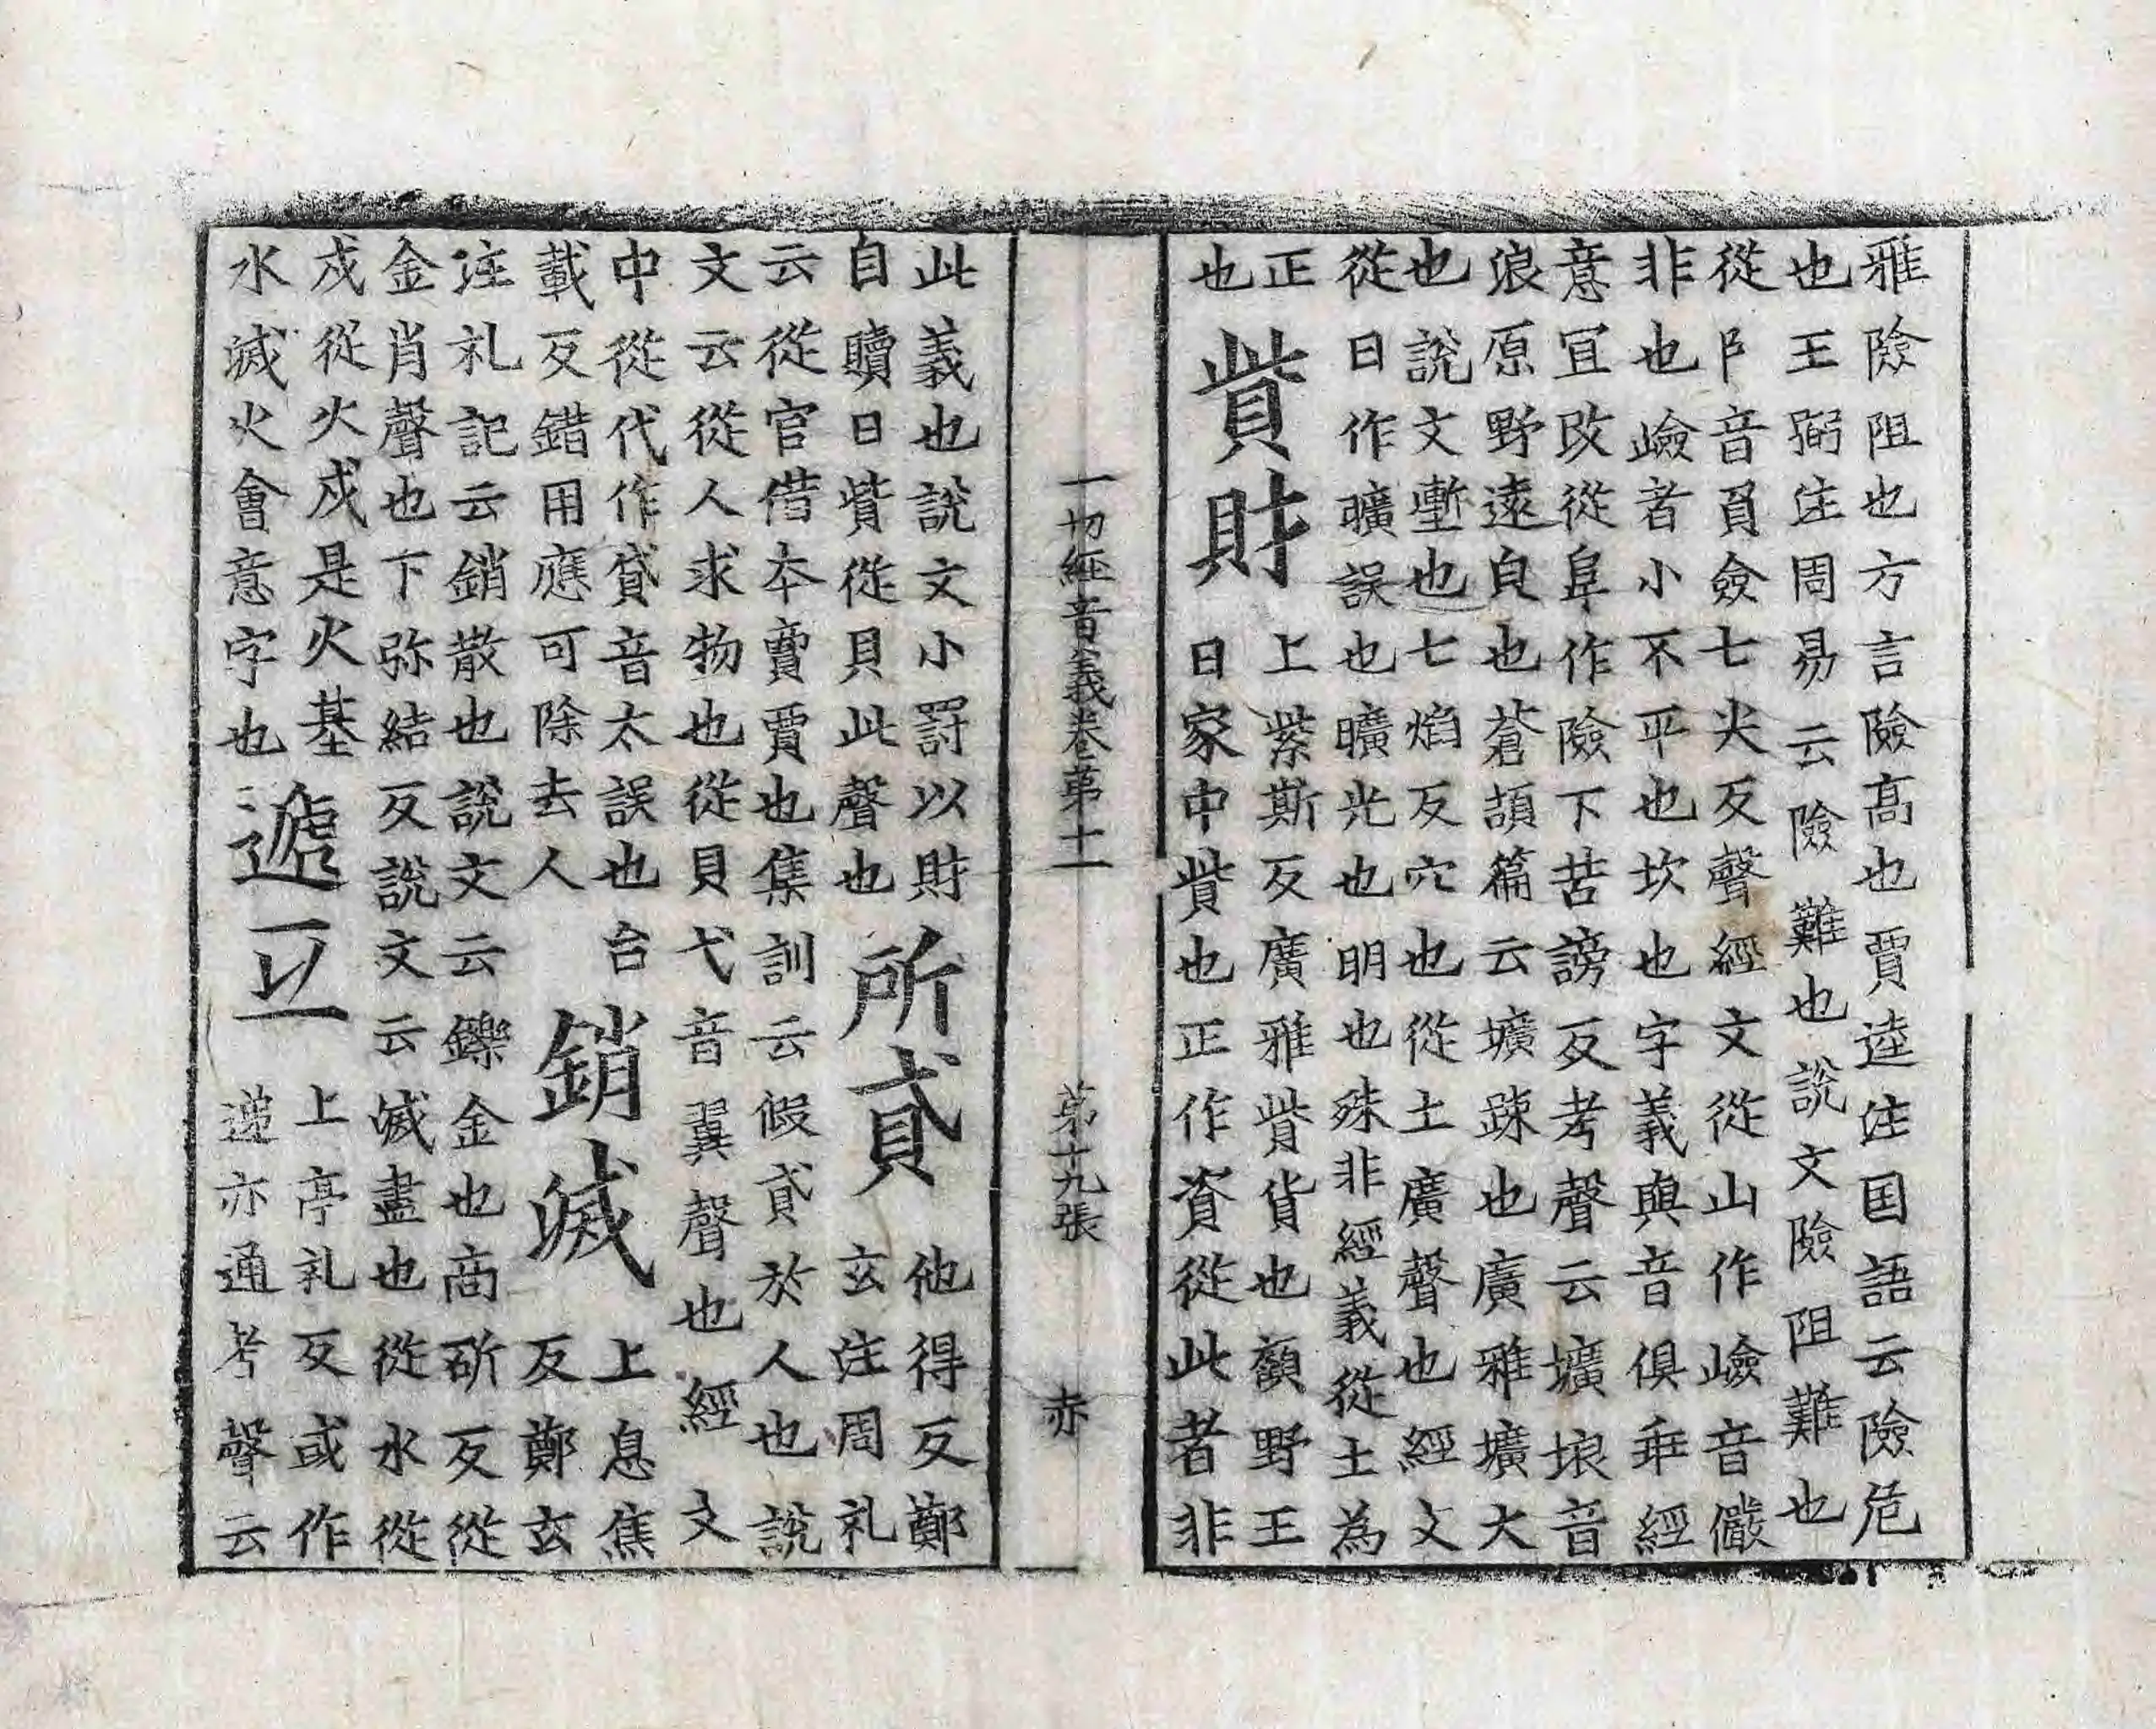 雅險阻也方言險髙也賈逵注国語云險危
也王弼注周易云險難也說文險阻難也
從阝音負僉七尖反聲經文從山作嶮音儼
非也嶮者小不平也坎也字義與音俱乖經
意冝改從阜作險下苦謗反考聲云壙埌音
浪原野遠皃也蒼頡篇云壙踈也廣雅壙大
也說文壍也七焰反穴也從土廣聲也經文
從日作曠誤也曠光也明也殊非經義從土為
正
也
貲財
上紫斯反廣雅貲貨也顧野王
曰家中貲也正作資從此者非
一切經音義卷第十一 第十九張 赤
此義也說文小罰以財
自贖曰貲從貝此聲也
所貣
他得反鄭
玄注周礼
云從官借本賣賈也集訓云假貣於人也說
文云從人求物也從貝弋音翼聲也經文
中從代作貸音太誤也台
載反錯用應可除去人
銷滅
上息焦
反鄭玄
注礼記云銷散也說文云鑠金也商斫反從
金肖聲也下弥結反說文云滅盡也從水從
戍從火戍是火基
水滅火會意字也
遞互
上亭礼反或作
递亦通考聲云